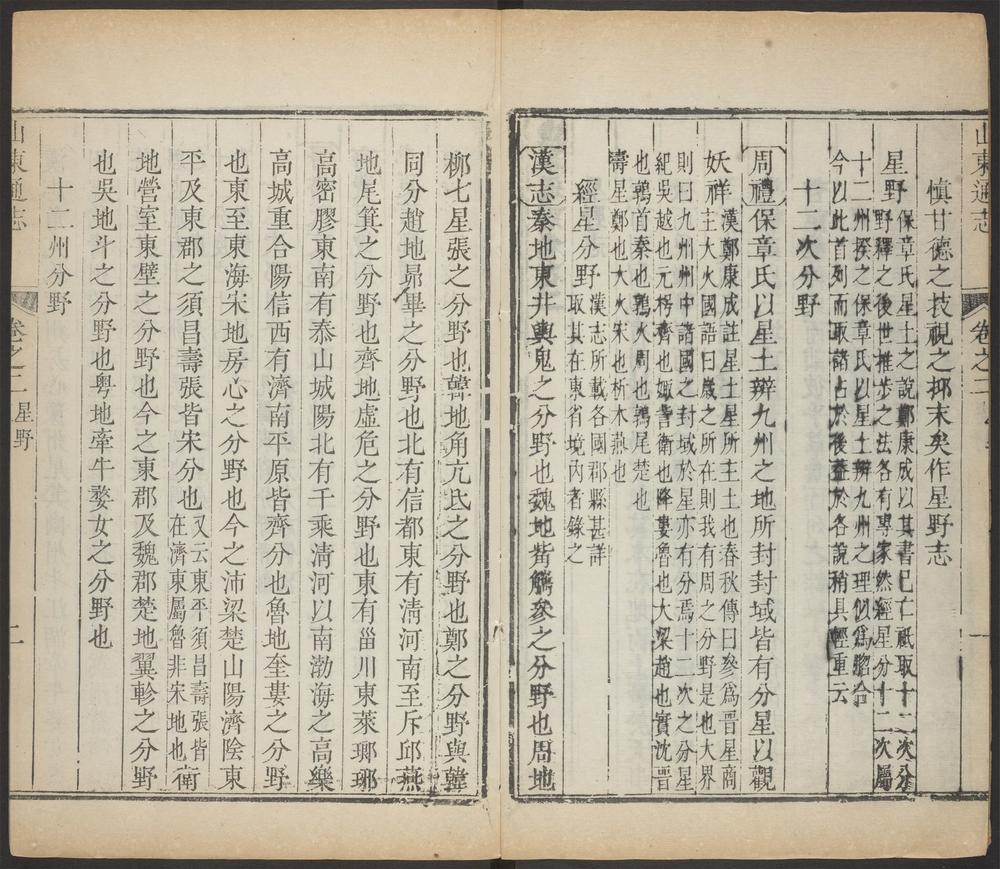 山東通志
卷之二
一
慎甘德之技視之抑末矣作星野志
星野
保章氏星土之說鄭康成以其書已亡祇取十二次分
野釋之後世推步之法各有專家然經星分十二次屬
十二州揆之保章氏以星土辨九州之理似爲脗合
今以此首列而取諸占於後葢於各說稍具輕重云
十二次分野
周禮保章氏以星土辯九州之地所封封域皆有分星以觀
妖祥
漢鄭康成註星土星所主土也春秋傳曰參爲晉星商
主大火國語曰歲之所在則我有周之分野是也大界
則曰九州州中諸國之封域於星亦有分焉十二次之分星
紀吳越也元枵齊也娵訾衛也降婁魯也大梁趙也實沈晉
也鶉首秦也鶉火周也鶉尾楚也
壽星鄭也大火宋也析木燕也
經星分野
漢志所載各國郡縣甚詳
取其在東省境內者錄之
漢志秦地東井輿鬼之分野也魏地觜觿參之分野也周地
柳七星張之分野也韓地角亢氐之分野也鄭之分野與韓
同分趙地昴畢之分野也北有信都東有清河南至斥邱燕
地尾箕之分野也齊地虛危之分野也東有甾川東萊瑯琊
高密膠東南有泰山城陽北有千乘清河以南渤海之高樂
高城重合陽信西有濟南平原皆齊分也魯地奎婁之分野
也東至東海宋地房心之分野也今之沛梁楚山陽濟陰東
平及東郡之須昌壽張皆宋分也
又云東平須昌壽張皆
在濟東屬魯非宋地也
衛
地營室東壁之分野也今之東郡及魏郡楚地翼軫之分野
也吳地斗之分野也粤地牽牛婺女之分野也
十二州分野
山東通志
卷之二 星野
二